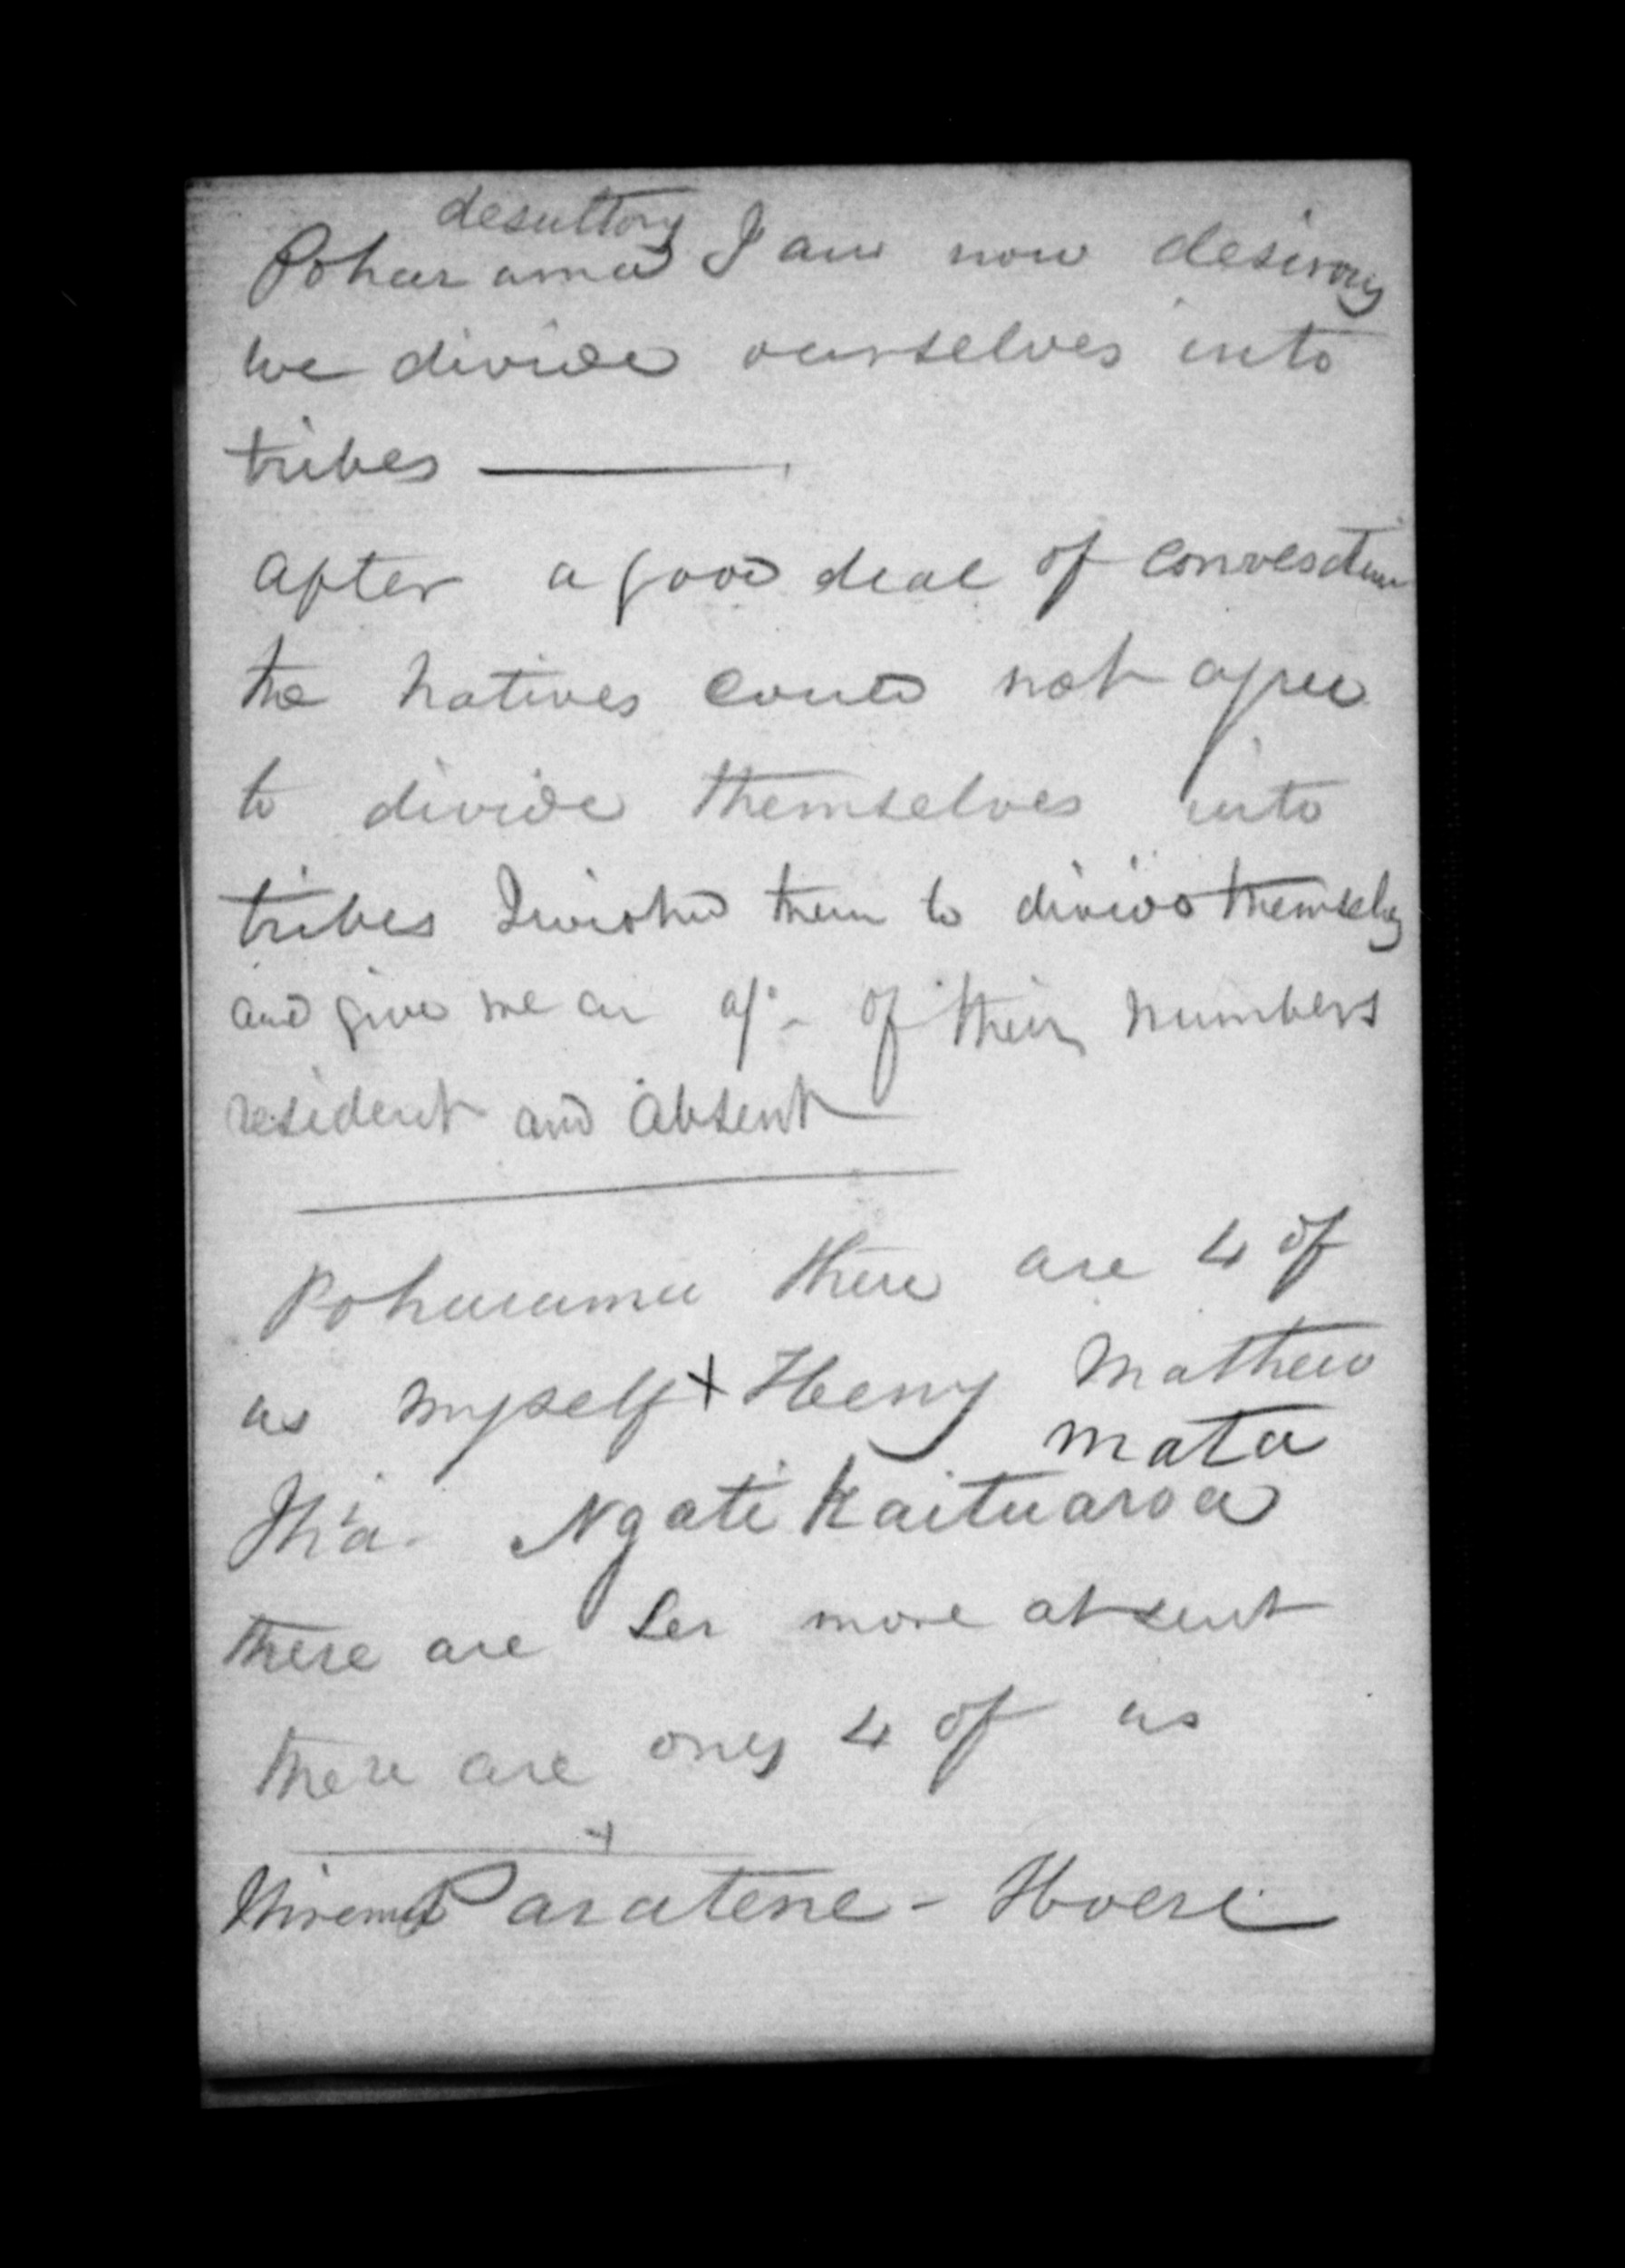 desultory
Poharama I am now desirous
we divide ourselves into
tribes ———
After a good deal of convesation
the natives could not agree
to divide themselves into
tribes I wished them to divide themselves
and give me an a/c of their numbers
resident and absent
Poharama there are 4 of
us myself + Henry Mathew
mata
Ihia. Ngatikaituaroa
there are ten more absent
there are only 4 of us
+
Paratene - Hoere